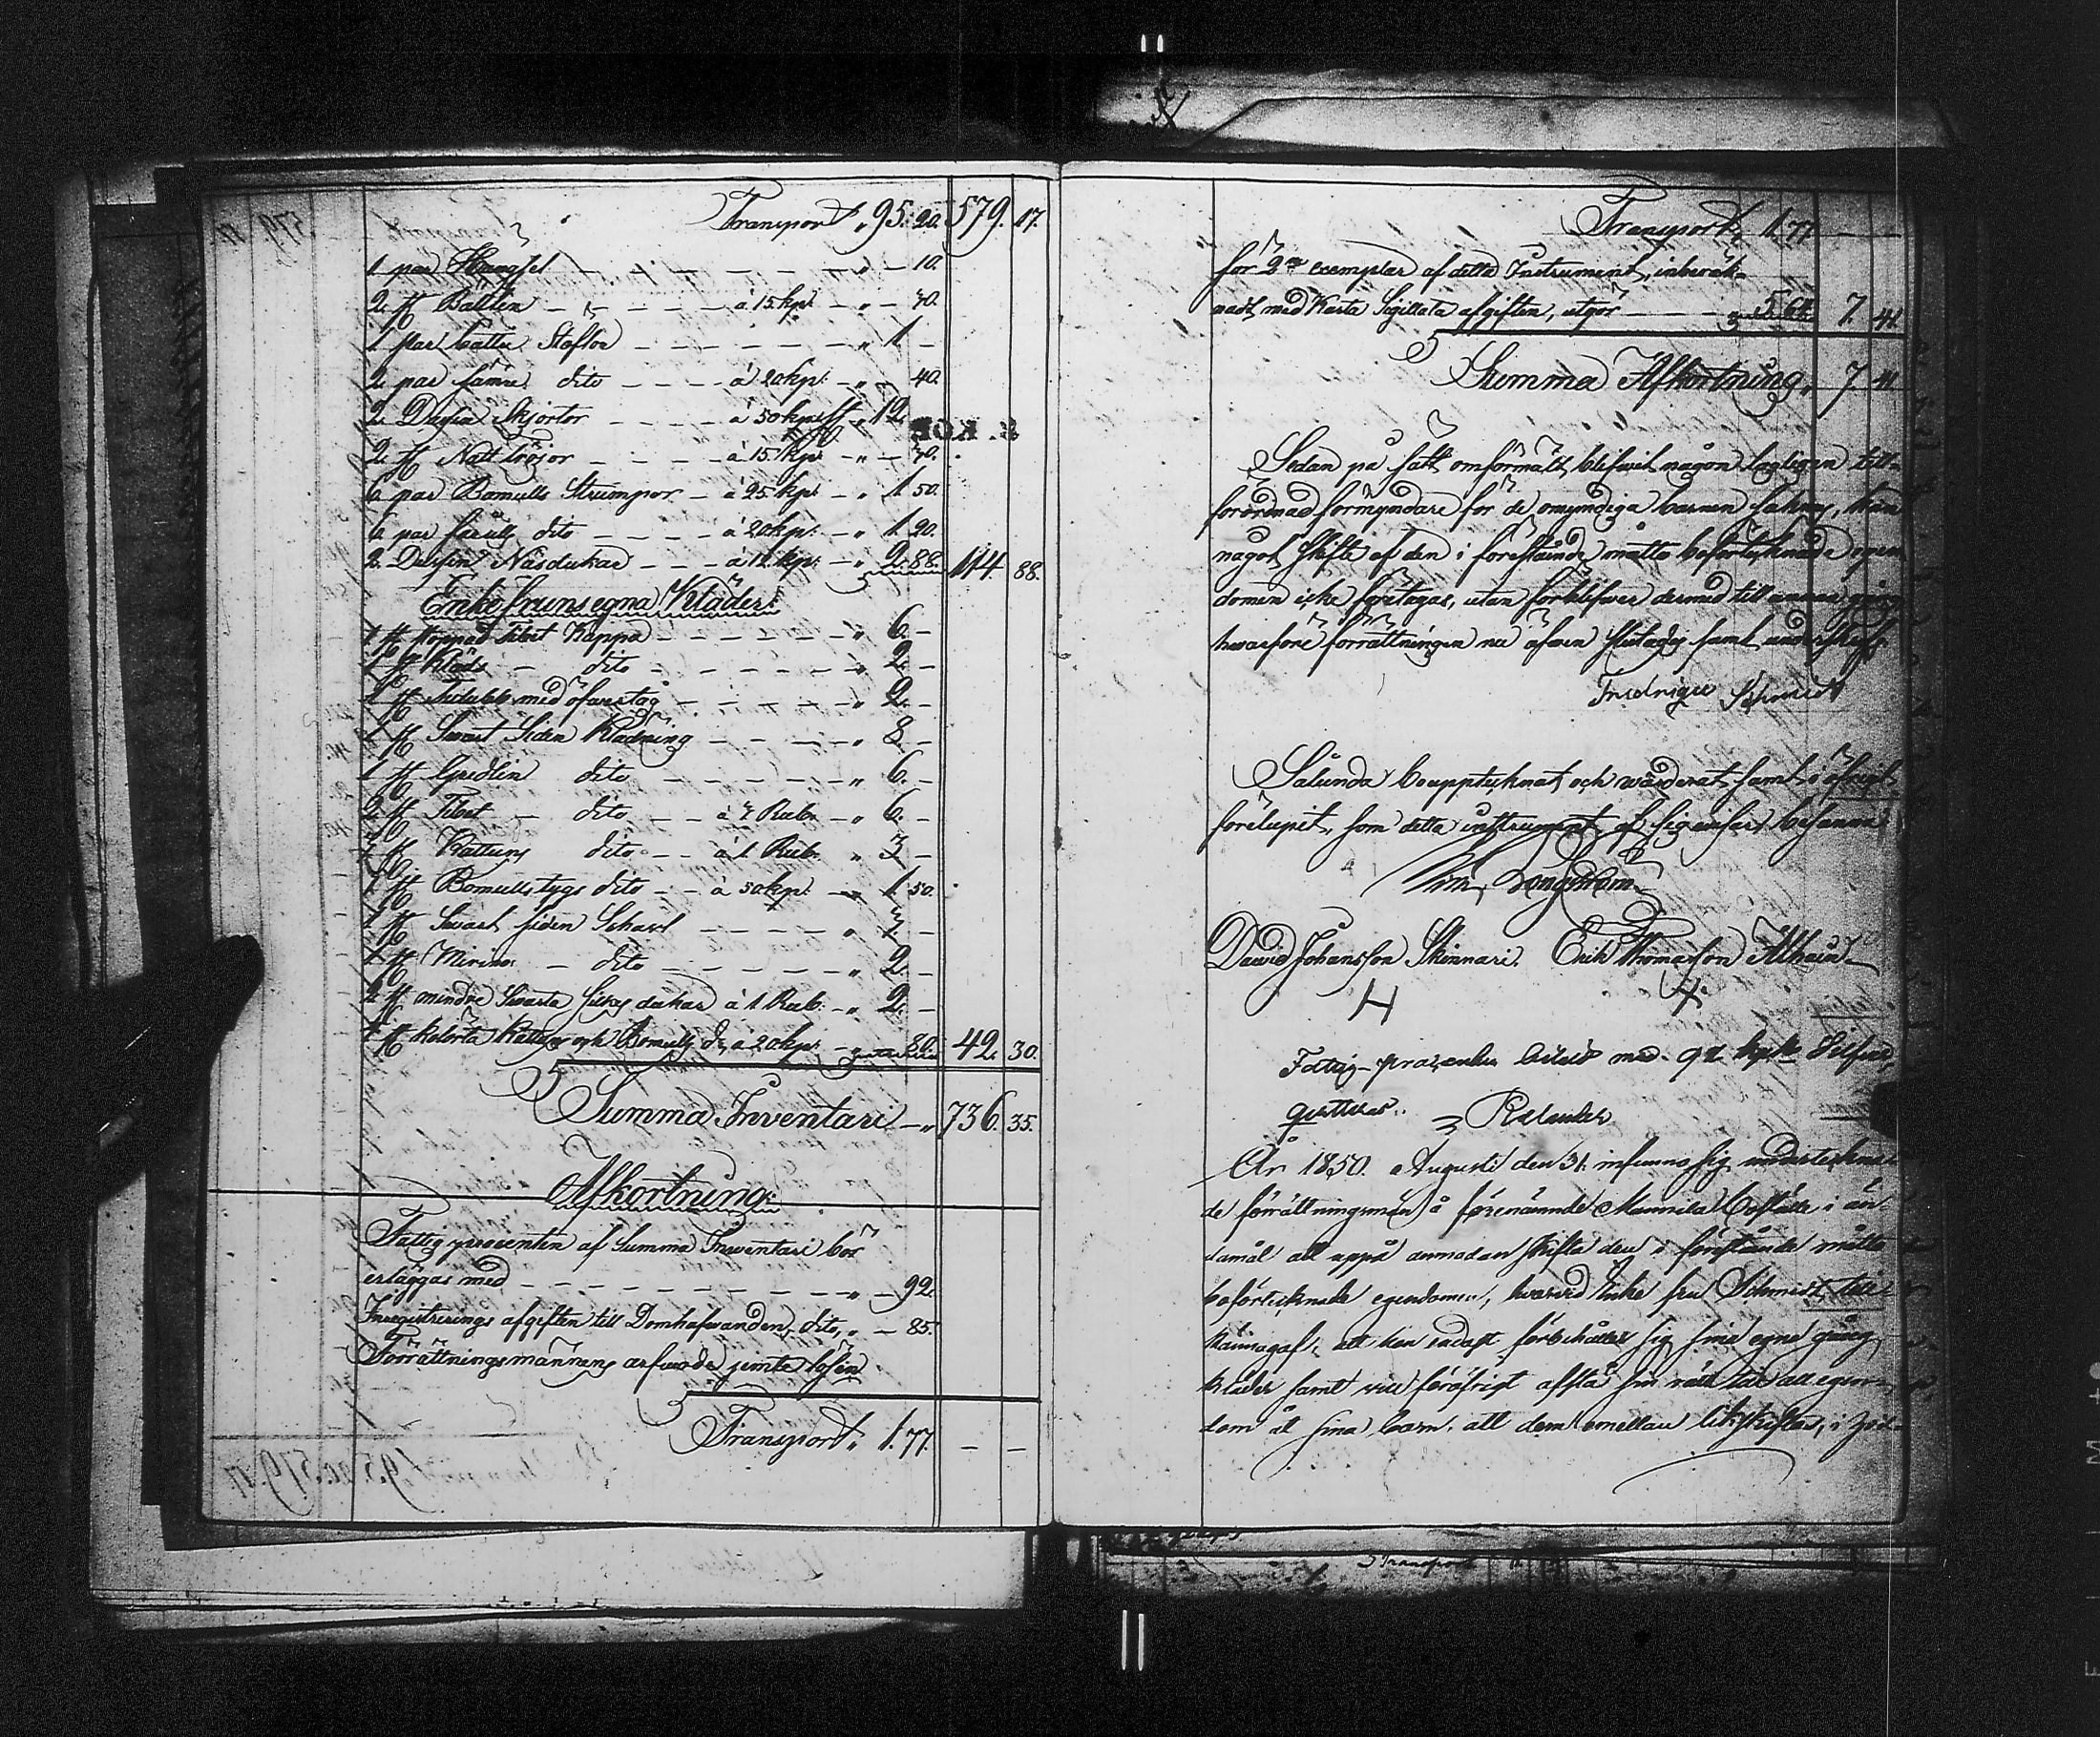 Transport „ 95. 20. 579. 17.
1 par Hängsel — — — — „ — 10.
2 st Bälten — — — à 15 kp. — „ — 30.
1 par bättre Stöflor — — — — — „ 1 —
2 par sämre dito — — — à 20 kp: — „ — 40.
2 Dussin Skjortor — — — à 50 kp st „ 12.
2 st Natt Tröjor — — — à 15 kp. — „ — 30.
6 par Bomulls Strumpor — à 25 kp. — „ 1 50.
6 par fårulls dito — — — à 20 kp: — „ 1 20.
2 Dussin Näsdukar — — — à 12 kp: — „ 2. 88. 114. 88.
Enkefruns egna Kläder:
1 st stoppad Tibet Kappa — — — — „ 6. —
1 st Kläds — dito — — — — — „ 2. —
1 st med öfvertåg — — — — „ 2. —
1 st Swart Siden Klädning — — — — „ 8. —
1 st Gredlin dito — — — — — „ 6. —
2 st Tibet — dito — — à 3 Rub. — „ 6. —
3 st Kattuns dito — — à 1 Rub. „ 3 —
3 st Bomullstygs dito — — à 50 kp. — „ 1. 50.
1 st Swart siden Schavl — — — — „ 3 —
1 st Merino — dito — — — — — „ 2. —
2 st mindre Swarta silkes dukar à 1 Rub: — „ 2. —
4 st kulörta Kattuns och Bomulls d:o à 20 kp. — „ — 80. 42. 30.
Summa Inventarii — „ 736. 35.
Afkortning:
Fattigprocenten af Summa Inventarii bör
erläggas med — — — — — — — — „ — 92.
Inregistrerings afgiften till Domhafwanden, dito, „ — 85.
Förrättningsmännens arfwode jemte lösen
Transport „ 1. 77. — —
Transport „ 1. 77. — —
för 2:ne exemplar af detta Instrument, inberäk-
nadt med Karta Sigillata afgiften, utgör — — — „ 5. 64. 7. 41.
Summa Afkortning „ 7. 41.
Sedan på sätt omförmält, blifwit någon lagligen till-
förordnad förmyndare för de omyndiga barnen saknas, kan
något skifte af den i förestående måtto boförtecknade egen
domen icke företagas, utan förblifwer dermed till annan gång
hwarföre förrättningen nu äfwen slutades samt underskrefs
Fredrique Schmidt
Sålunda bouppteknat och wärderat samt i öfrigt
förelupit, som detta instrument af sig sjelf, besanna
Longström
David Johansson Skinnari. Erik Thomasson
Fattig-procenten bitald med 92 kopk Silfver,
qvitteras. Relander
År 1850. Augusti den 31. infunno sig underteckna-
de förrättningsmän å förenämnde Mannila Boställe i än-
damål att uppå anmodan skifta den i förestående måtto
boförtecknade egendomen, hvarvid Enke fru Schmidt till-
kännagaf, att hon endast förbehåller sig sina egna gång
kläder samt vill föröfrigt afstå sin rätt till all egen-
dom åt sina barn, att dem emellan likskiftas, i